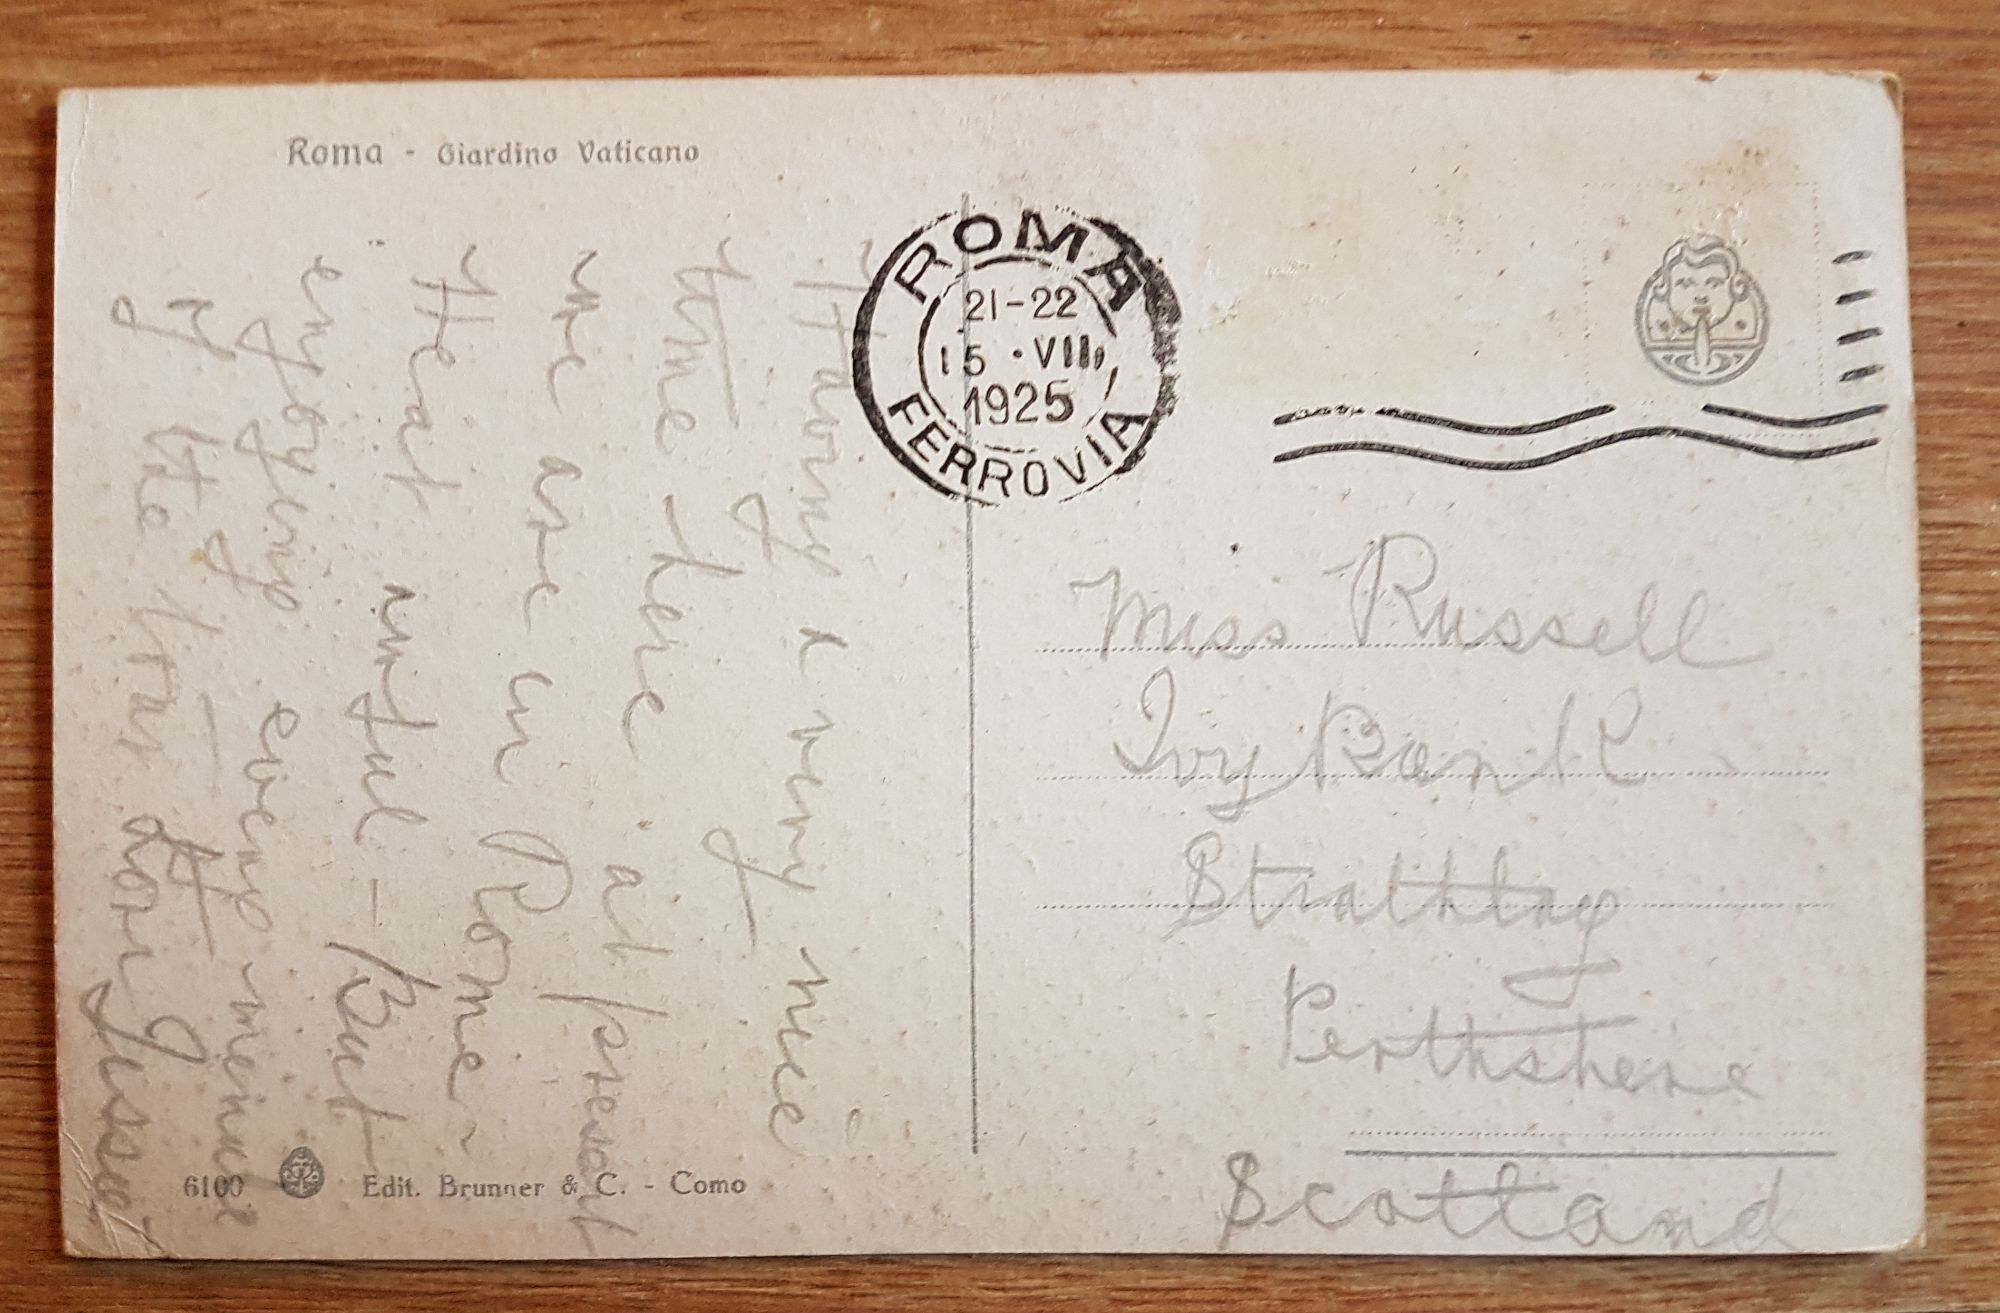 Roma - Giardino Vaticano
ROMA
21-22
15 · VII
1925
FERROVIA
Having a very nice
time here at present
we are in Rome -
Heat awful - But
enjoying every minute
of it
Miss Russell
Ivy Bank
Strathtay
Perthshire
Scotland
6100 Edit. Brunner & C. - Como